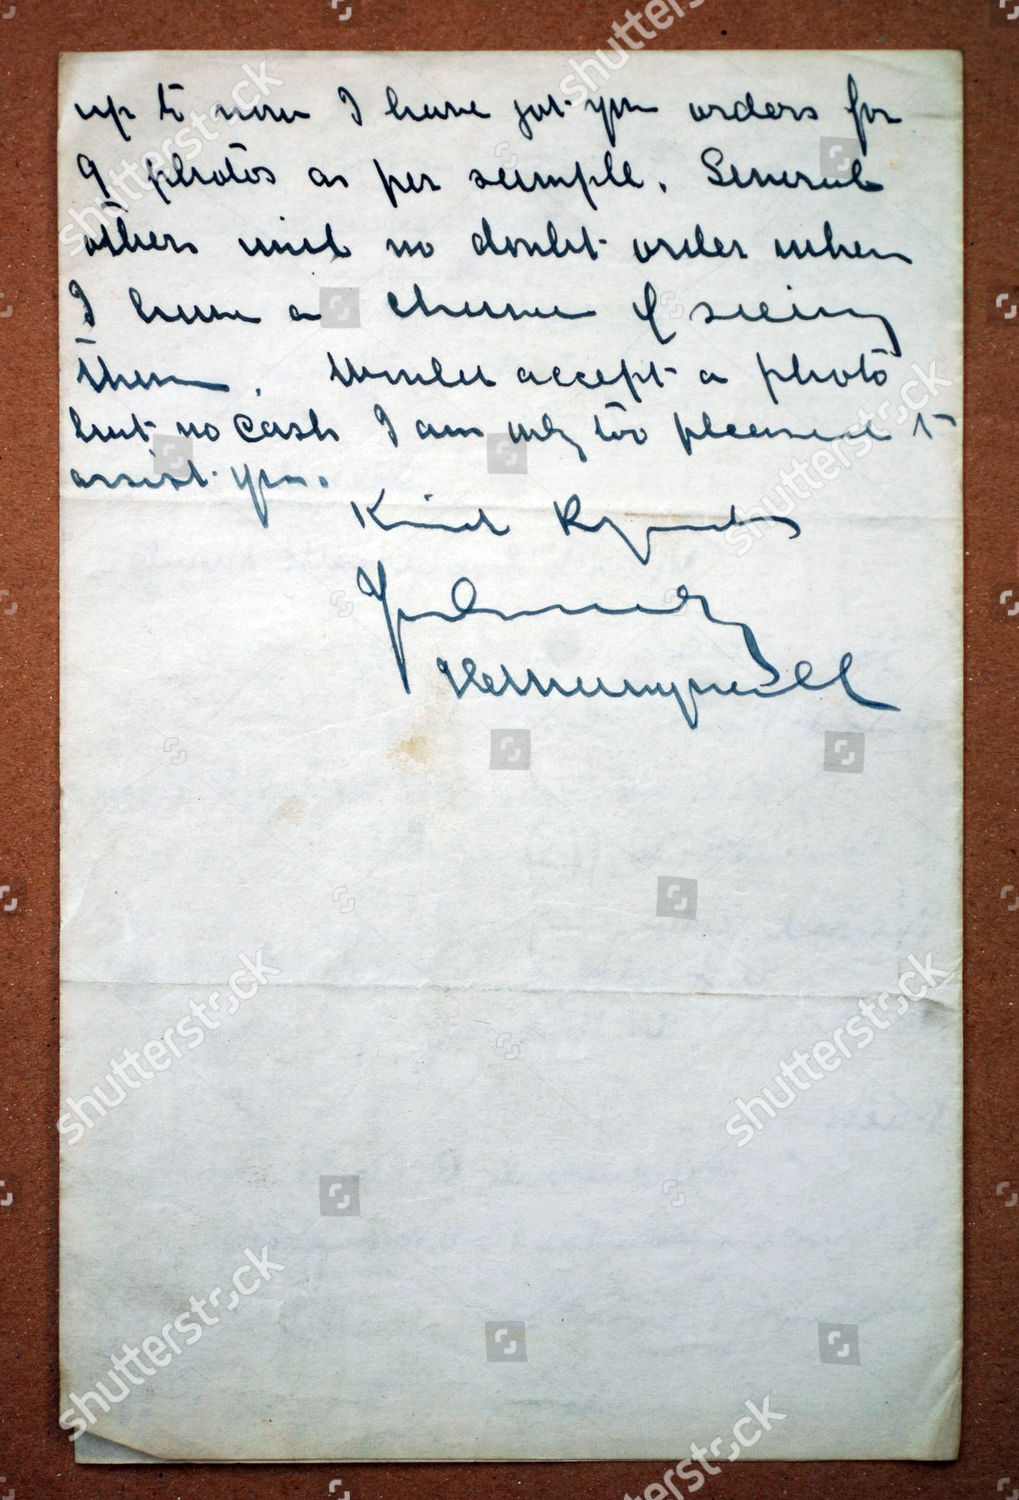 up to now I have got you orders for
9 photos as per sample. Several
others will no doubt order when
I have a chance of seeing
them. Would accept a photo
but no cash I am only too pleased to
assist you.
Kind Regards
Yours
shutterstock
shutterstock
shutterstock
shutterstock
shutterstock
shutterstock
shutterstock
shutterstock
shutterstock
shutterstock